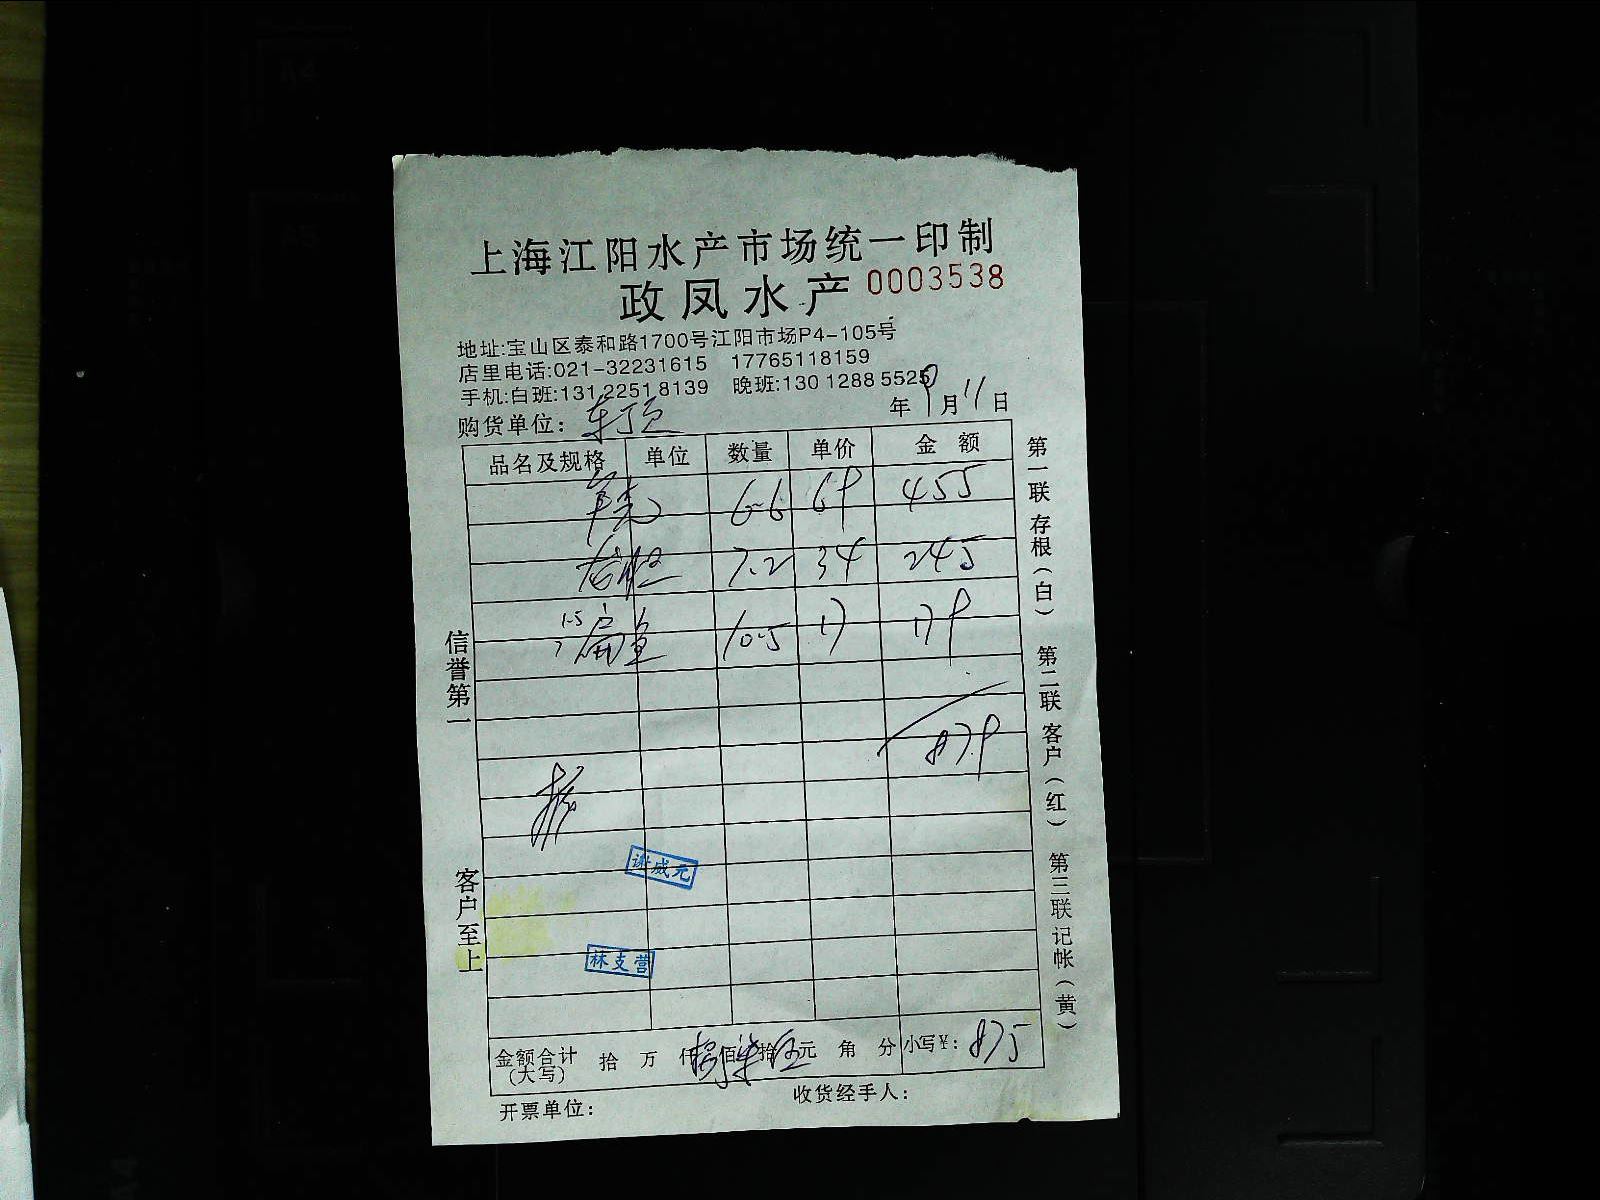 上海江阳水产市场统一印制
政凤水产 0003538
地址:宝山区泰和路1700号江阳市场P4-105号
店里电话:021-32231615 17765118159
手机:白班:131 2251 8139 晚班:130 1288 5525
年 9月11日
购货单位: 东顶
品名及规格 单位 数量 单价 金 额
6.6 69 455
7.2 34 245
1.5 扁鱼 10.5 17 179
879
谢威元
林支营
金额合计(大写) 拾 万 仟 捌佰柒拾伍元 角 分 小写¥: 875
开票单位: 收货经手人:
信誉第一 客户至上
第一联 存根(白) 第二联 客户(红) 第三联 记帐(黄)